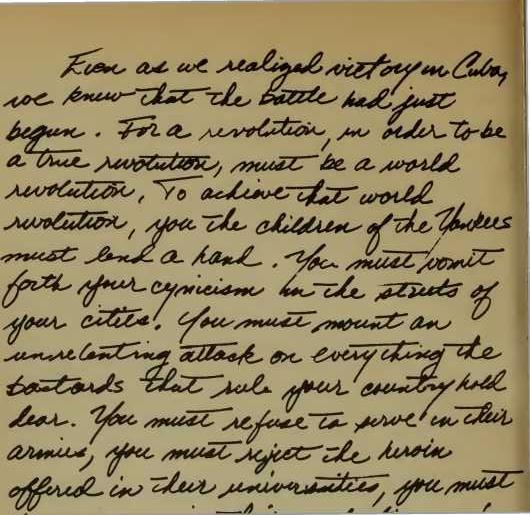 Even as we realized victory in Cuba,
we knew that the battle had just
begun. For a revolution, in order to be
a true revolution, must be a world
revolution. To achieve that world
revolution, you the children of the Yankees
must lend a hand. You must vomit
forth your cynicism in the streets of
your cities. You must mount an
unrelenting attack on everything the
bastards that rule your country hold
dear. You must refuse to serve in their
armies, you must reject the heroin
offered in their universities, you must